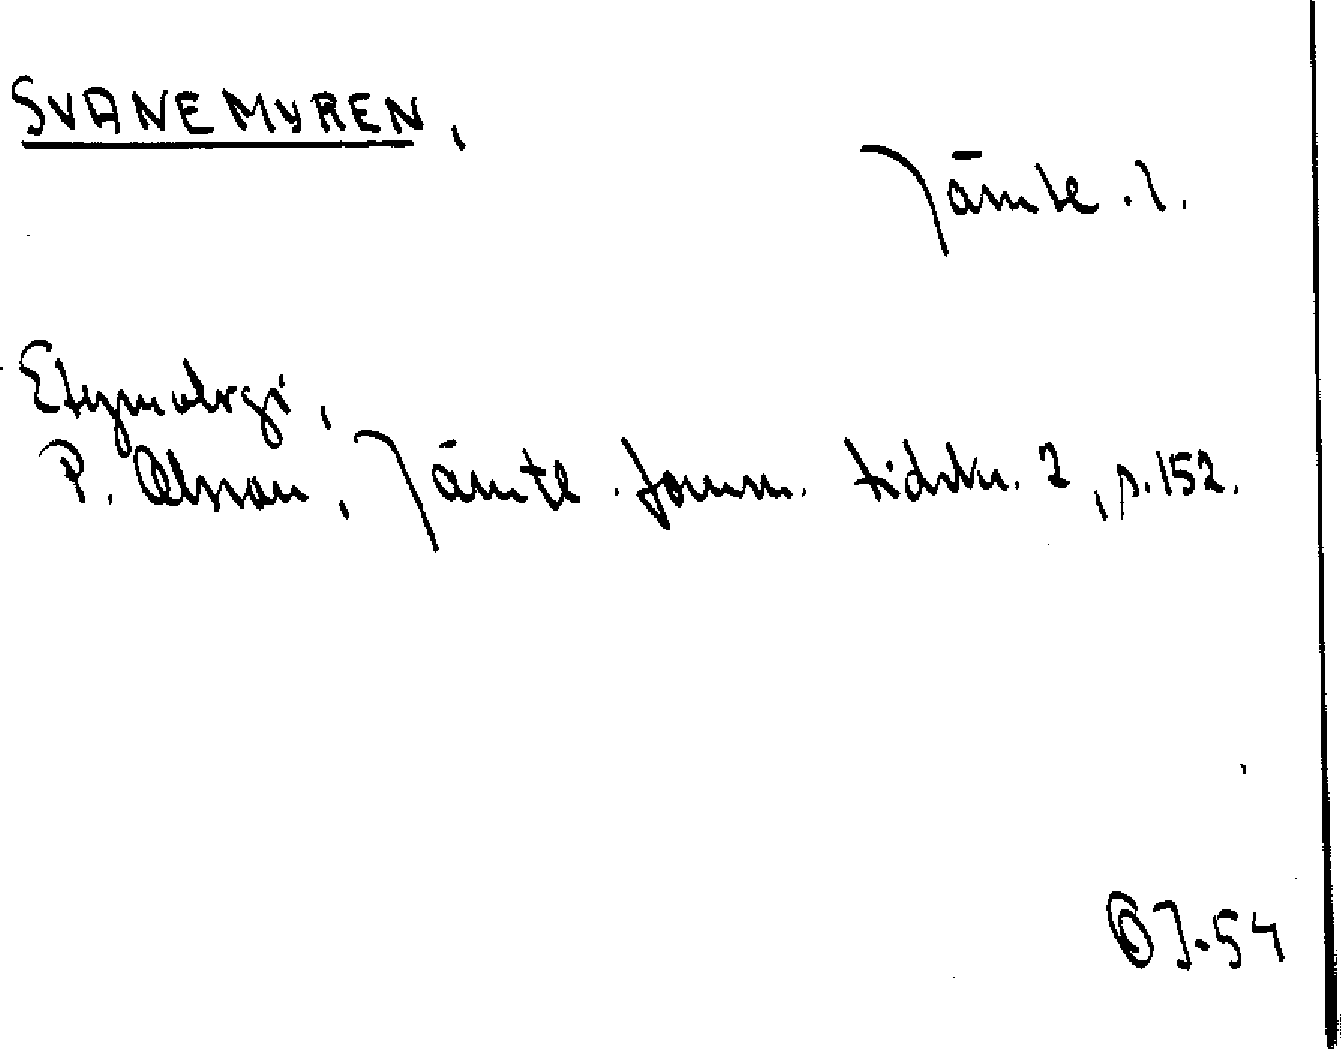 SVANEMYREN,
Jämte.l.
Etymologi,
P. Olsson, Jämte. fornm. tidskr. 2, s.152.
OJ-54